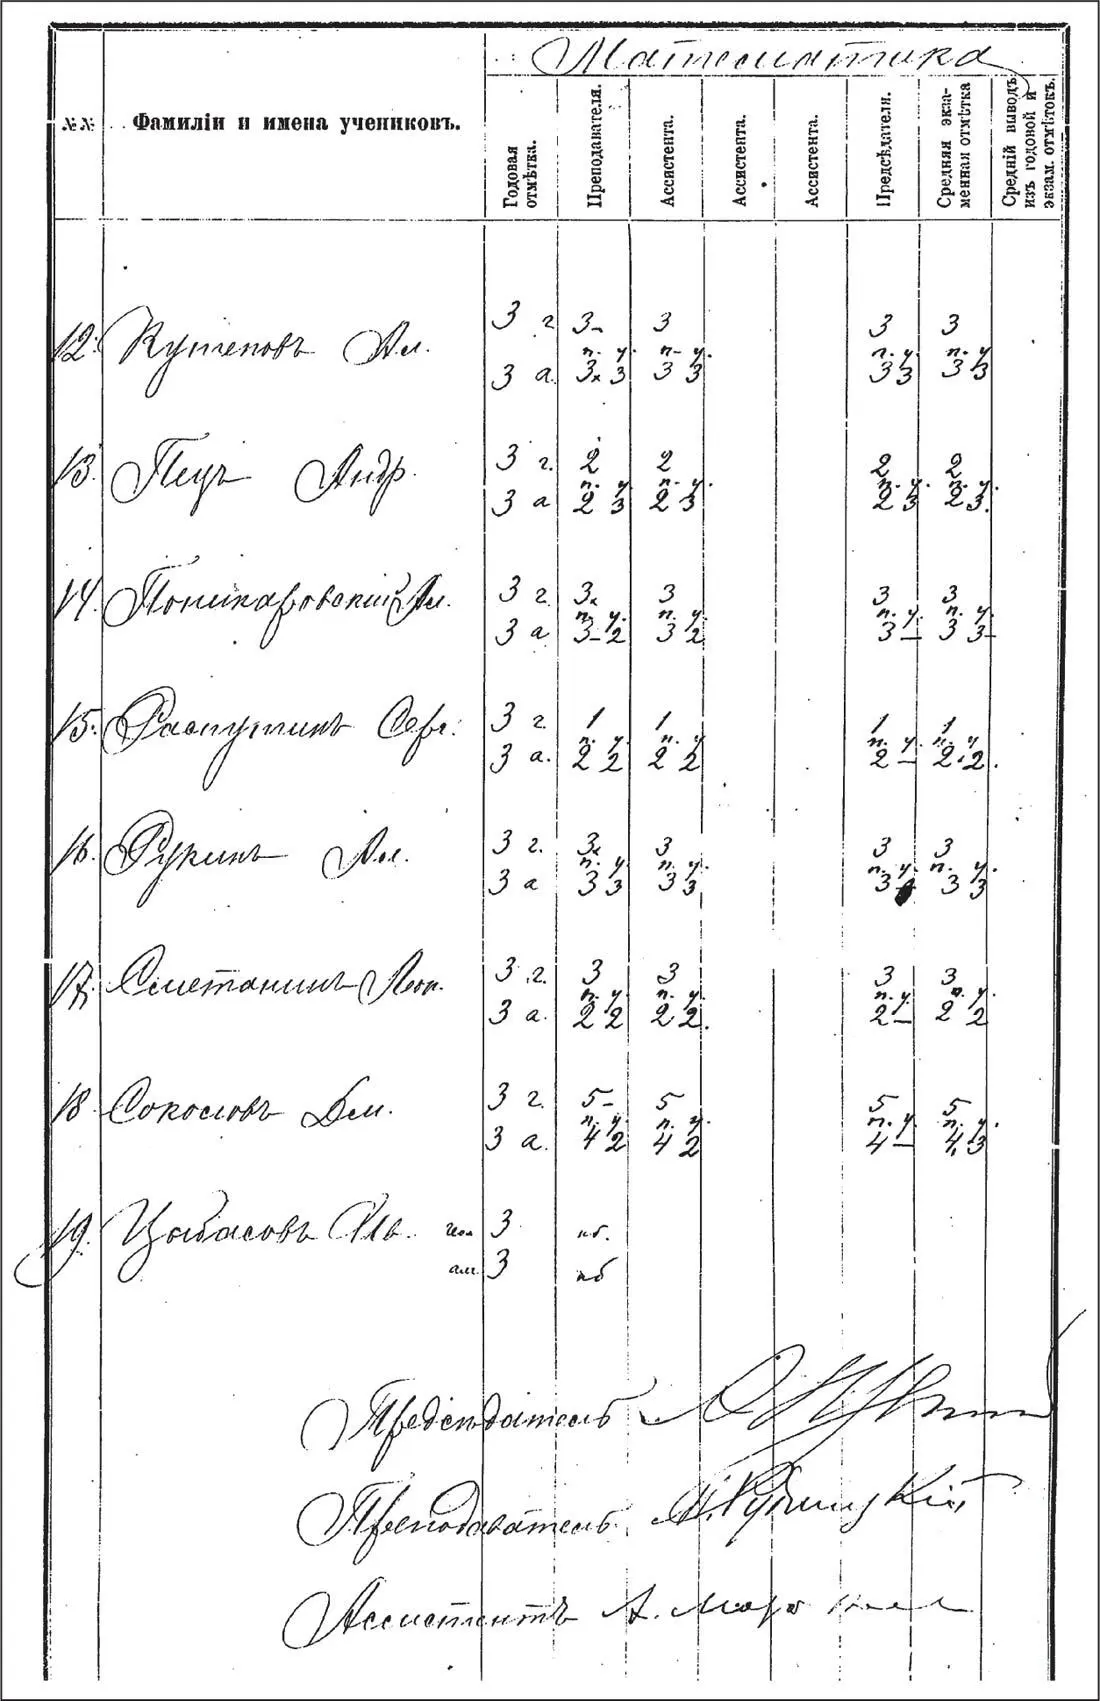 Математика
№№
Фамиліи и имена учениковъ.
Годовая отмѣтка.
Преподавателя.
Ассистента.
Ассистента.
Ассистента.
Предсѣдателя.
Средняя экза-
менная отмѣтка
Средній выводъ
изъ годовой и
экзам. отмѣтокъ.
3 г. 3- 3 3 3
12. Кутеповъ Ал. п. у. п- у. п. у. п. у.
3 а. 3 3 3 3 3 3 3 3
3 г. 2 2 2 2
13. Пецъ Андр. п. у. п. у. п. у. п. у.
3 а 2 3 2 3 2 3 2 3.
3 г. 3 3 3 3
14. Поликаровский Ал. п. у. п. у. п. у. п. у.
3 а 3-2 3 2 3 — 3 3-
3 г. 1 1 1 1
15. Распутинъ Серг. п. у. п. у. п. у. п. у
3 а. 2 2 2 2 2 — 2.2.
3 г. 3 3 3 3
16. Рукинъ Ал. п. у. п. у. п. у. п. у.
3 а 3 3 3 3 3 3 3
3 г. 3 3 3 3
17. Сметанинъ Леон. п. у. п. у. п. у. п. у
3 а. 2 2 2 2. 2 — 2 2
3 г. 5- 5 5 5
18 Соколовъ Дм. п. у. п. у. п. у. п. у.
3 а. 4 2 4 2 4 — 4,3
19. Ив. геом. 3 нб.
алг. 3 нб
Предсѣдатель
Преподаватель Рудницкій
Ассистентъ А.